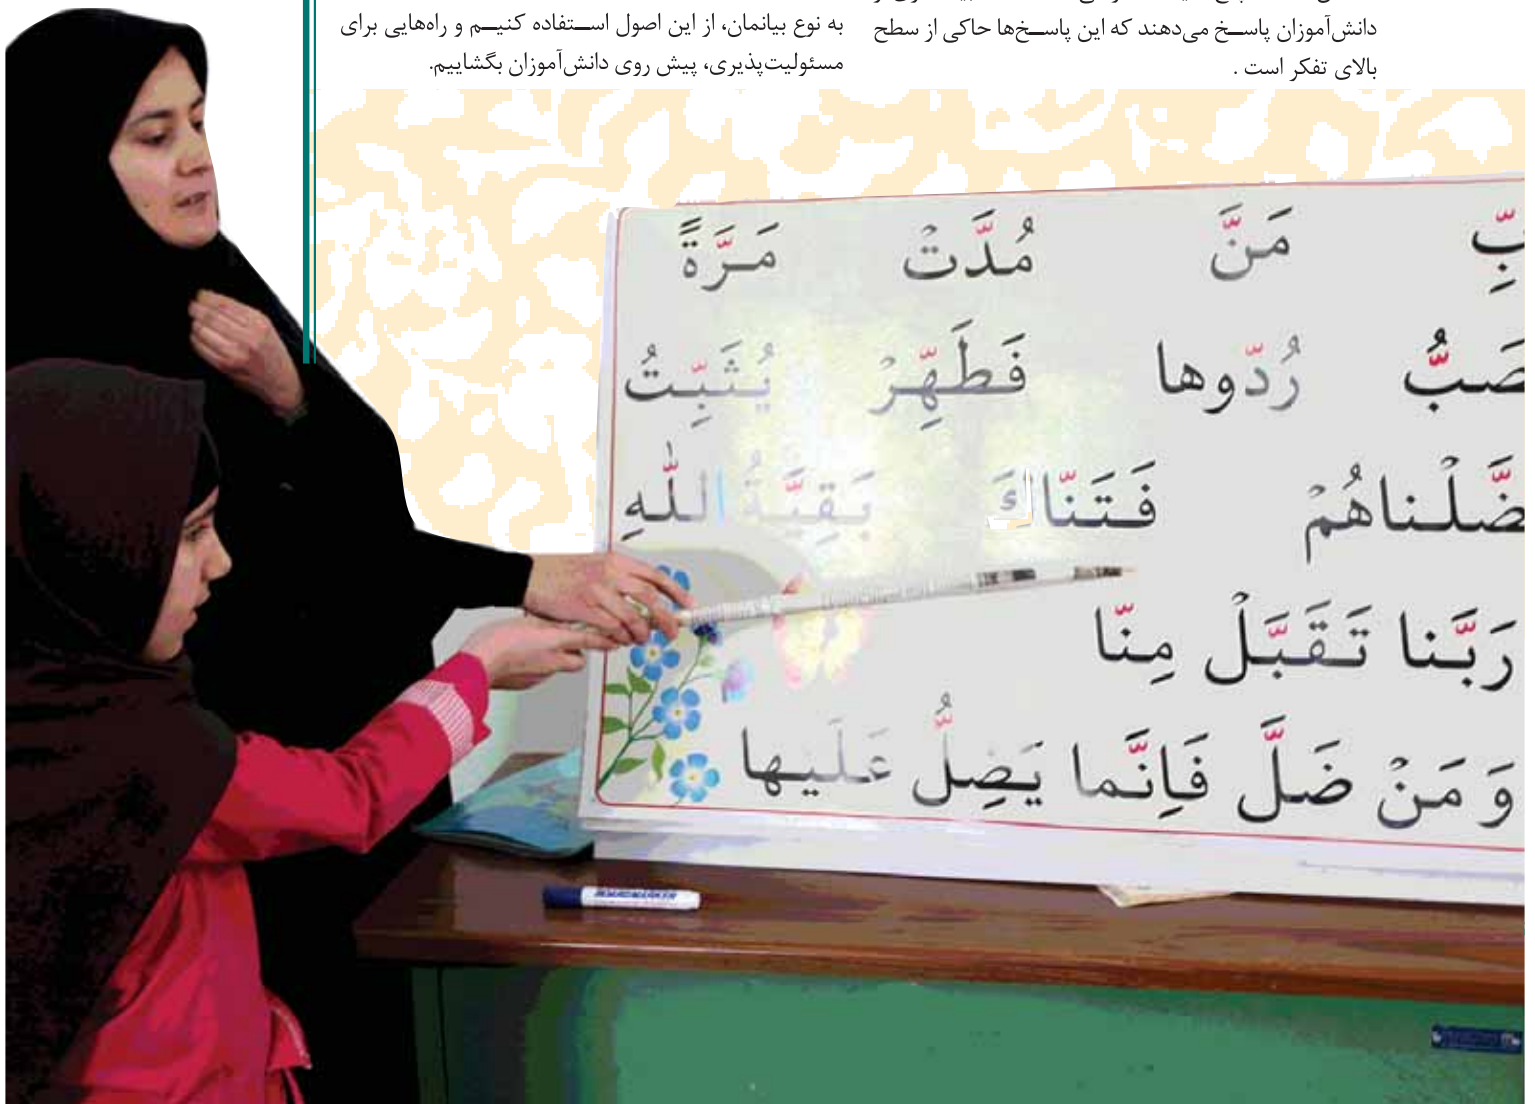 دانش‌آموزان پاسخ می‌دهند که این پاسخ‌ها حاکی از سطح
بالای تفکر است .
به نوع بیانمان، از این اصول استفاده کنیم و راه‌هایی برای
مسئولیت‌پذیری، پیش روی دانش‌آموزان بگشاییم.
مَنَّ مُدَّتْ مَرَّةً
رُدّوها فَطَهِّرْ يُثَبِّتُ
فَتَنّاكَ بَقِيَّةُ اللّٰهِ
رَبَّنا تَقَبَّلْ مِنّا
وَ مَنْ ضَلَّ فَاِنَّما يَضِلُّ عَلَيها